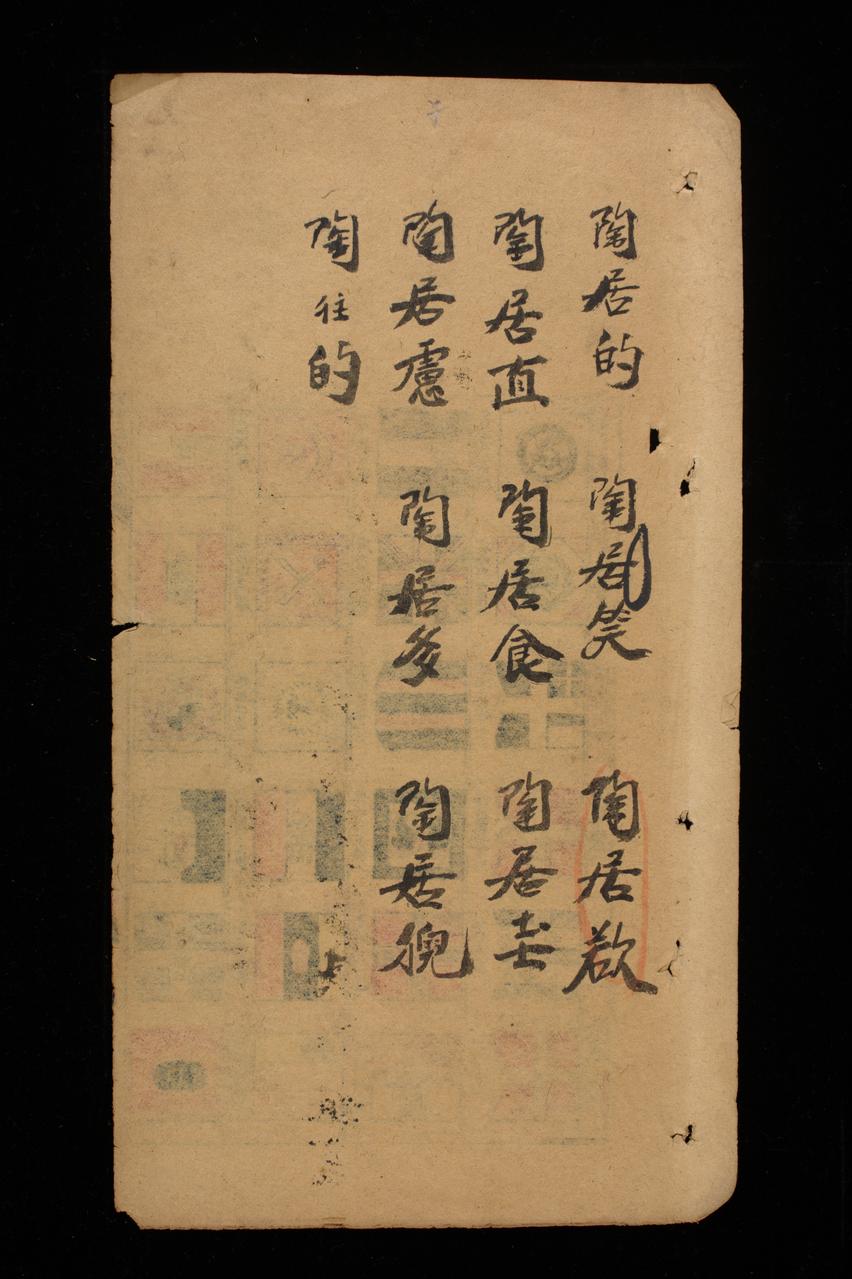 陶居的 陶居笑 陶居欲
陶居直 陶居食 陶居士
陶居慮 陶居多 陶居猊
陶住的